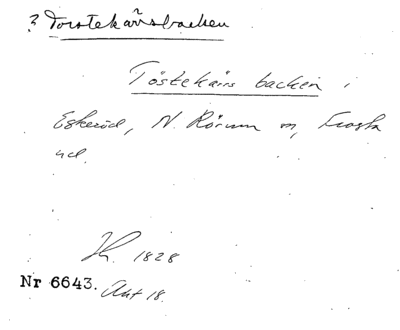 ? Torstekärrsbacken
Töstekärrs backen i
Eskeröd, N. Rörum sn, Frosta
hd.
Kr. 1828
Nr 6643. Akt 18.